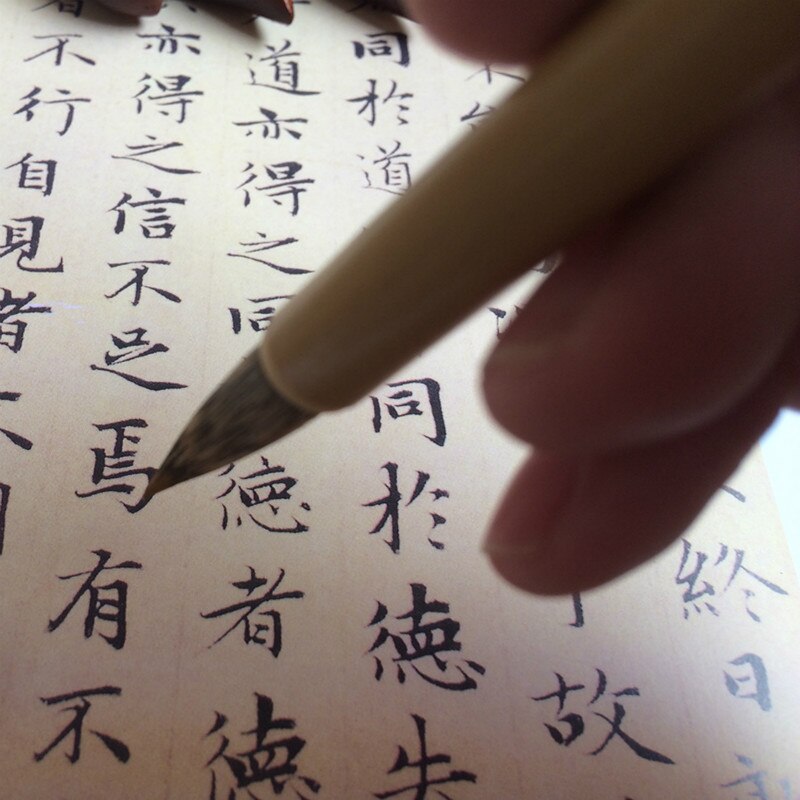 終日
故
同於道同於德失
道亦得之同德者德
亦得之信不足焉有不
者不行自見者不明